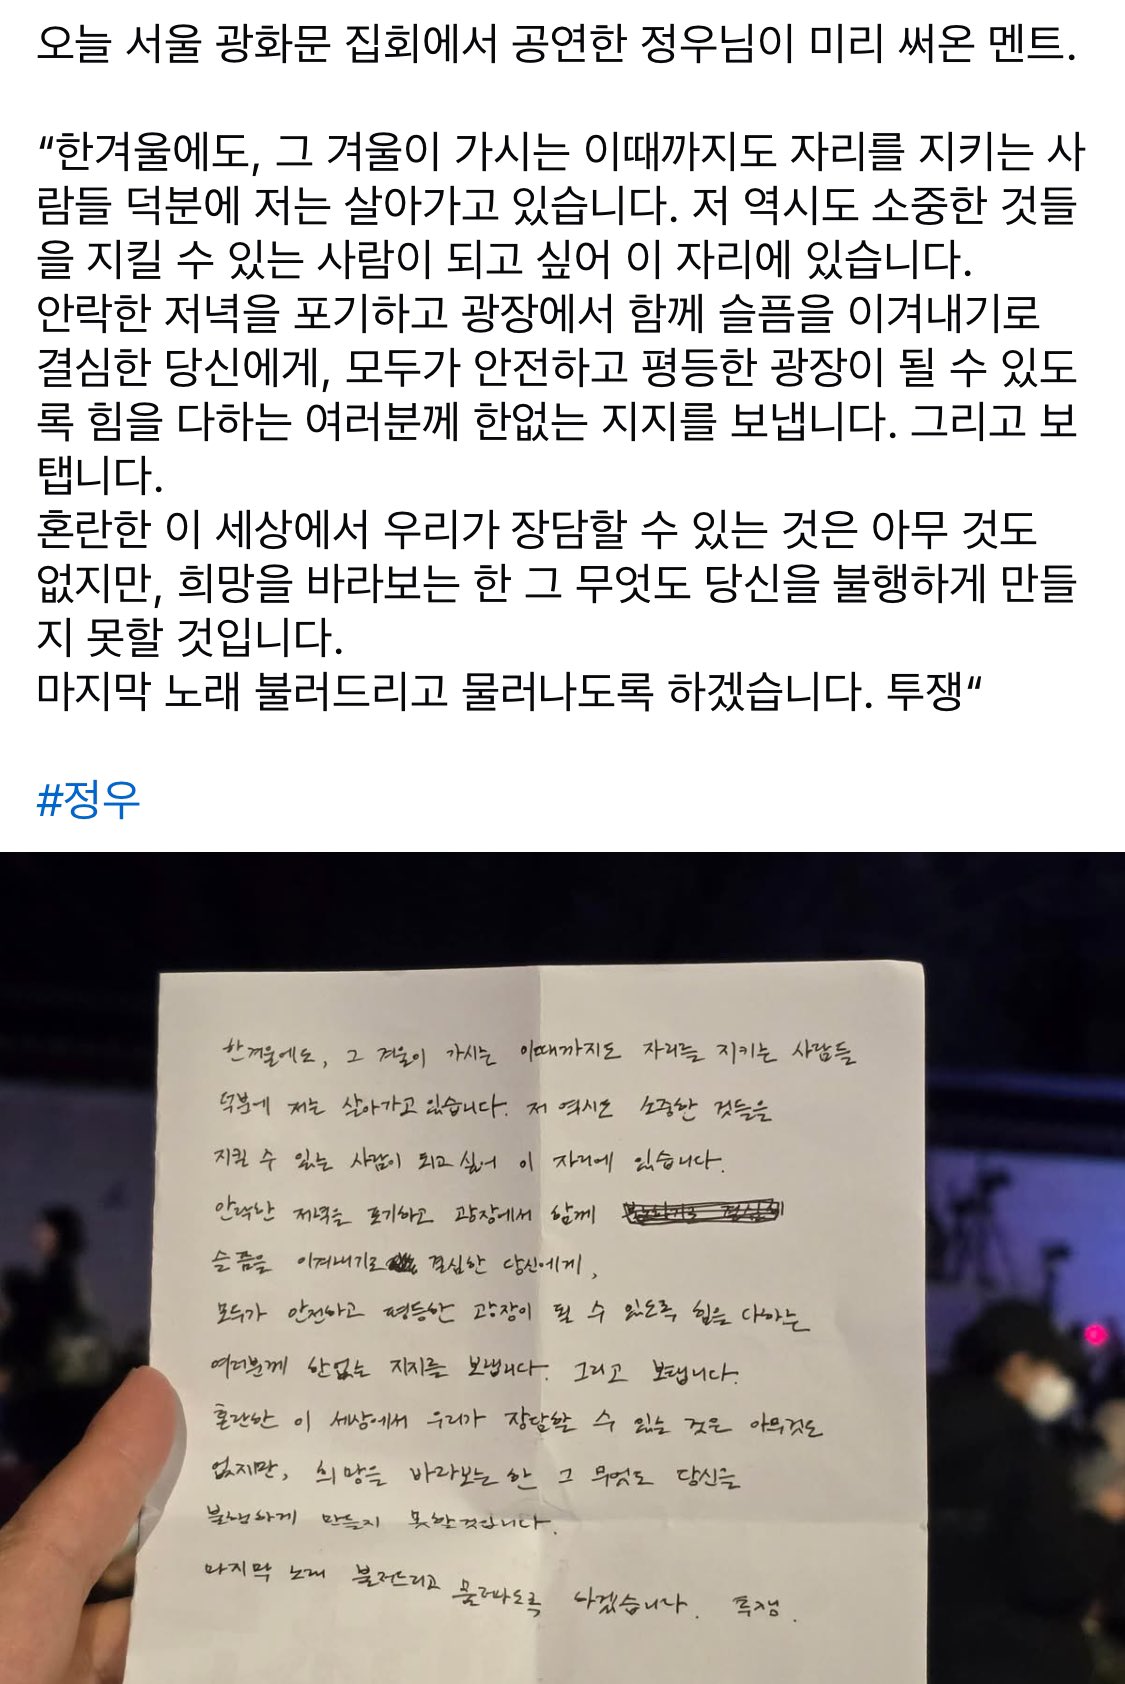 오늘 서울 광화문 집회에서 공연한 정우님이 미리 써온 멘트.
“한겨울에도, 그 겨울이 가시는 이때까지도 자리를 지키는 사
람들 덕분에 저는 살아가고 있습니다. 저 역시도 소중한 것들
을 지킬 수 있는 사람이 되고 싶어 이 자리에 있습니다.
안락한 저녁을 포기하고 광장에서 함께 슬픔을 이겨내기로
결심한 당신에게, 모두가 안전하고 평등한 광장이 될 수 있도
록 힘을 다하는 여러분께 한없는 지지를 보냅니다. 그리고 보
탭니다.
혼란한 이 세상에서 우리가 장담할 수 있는 것은 아무 것도
없지만, 희망을 바라보는 한 그 무엇도 당신을 불행하게 만들
지 못할 것입니다.
마지막 노래 불러드리고 물러나도록 하겠습니다. 투쟁“
#정우
한겨울에도, 그 겨울이 가시는 이때까지도 자리를 지키는 사람들
덕분에 저는 살아가고 있습니다. 저 역시도 소중한 것들을
지킬 수 있는 사람이 되고 싶어 이 자리에 있습니다.
안락한 저녁을 포기하고 광장에서 함께
슬픔을 이겨내기로 결심한 당신에게,
모두가 안전하고 평등한 광장이 될 수 있도록 힘을 다하는
여러분께 한없는 지지를 보냅니다. 그리고 보탭니다.
혼란한 이 세상에서 우리가 장담할 수 있는 것은 아무것도
없지만, 희망을 바라보는 한 그 무엇도 당신을
불행하게 만들지 못할것입니다.
마지막 노래 불러드리고 물러나도록 하겠습니다. 투쟁.